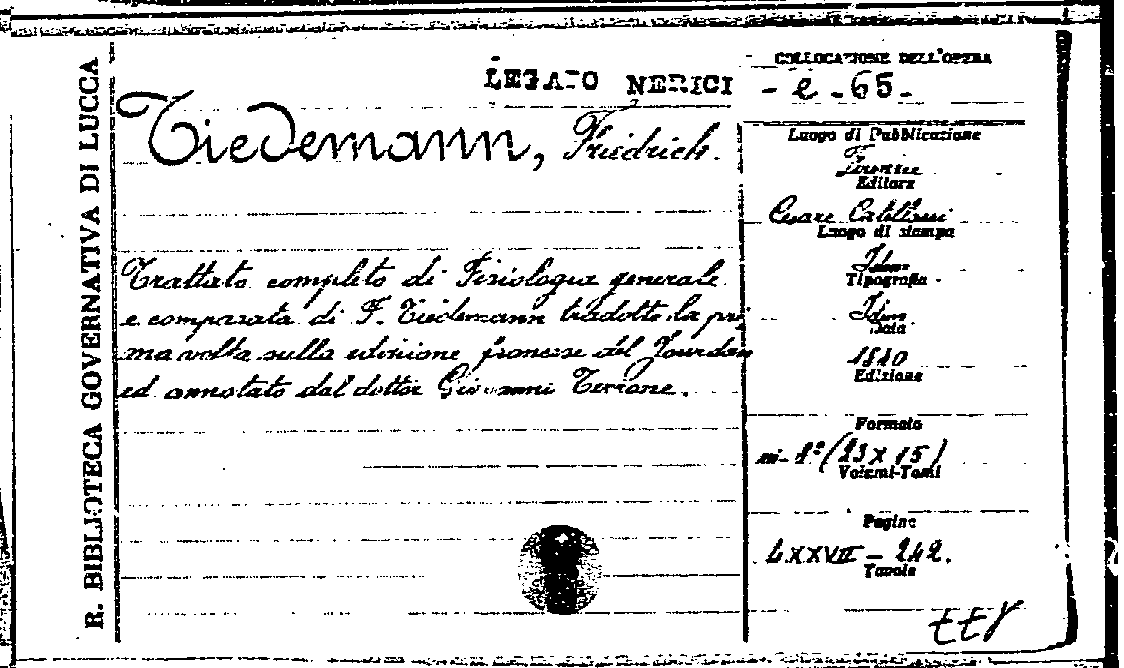 R. BIBLIOTECA GOVERNATIVA DI LUCCA
LEGATO NERICI
COLLOCAZIONE DELL'OPERA
- e - 65 -
Tiedemann, Friedrich.
Trattato completo di Fisiologia generale
e comparata di F. Tiedemann tradotto la pri
ma volta sulla edizione francese del Jourdan
ed annotato dal dottor Giovanni Terrone.
Luogo di Pubblicazione
Firenze
Editore
Cesare
Luogo di stampa
Idem
Tipografia
Idem
Data
1840
Edizione
Formato
in-8° (23 x 15)
Volumi-Tomi
Pagine
LXXVII - 242.
Tavole